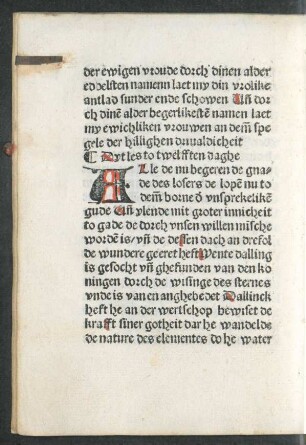 der ewigen vroude dorch dinen alder
eddelsten namenn laet my din vrolike
antlad sunder ende schowen Uñ dor
ch dinē alder begerlikestē namen laet
my ewichliken vrouwen an dem̄ spe
gele der hillighen drualdicheit
¶ Dyt les to twelfften daghe
Alle de nu begeren de gna
de des losers de lopē nu to
dem̄ borne ō vnsprekelikē
gude Uñ ylende mit groter innicheit
to ga de dorch vnsen willen minsche
wordē is/ vñ de dessen dach an drefol
de wundere geeret heft Wente dalling
is gesocht vñ ghefunden van den ko
ningen dorch de wisinge des sternes
vnde is van en anghebedet Dallinck
heft he an der wertschop bewiset de
krafft siner gotheit dar he wandelde
de nature des elementes do he water